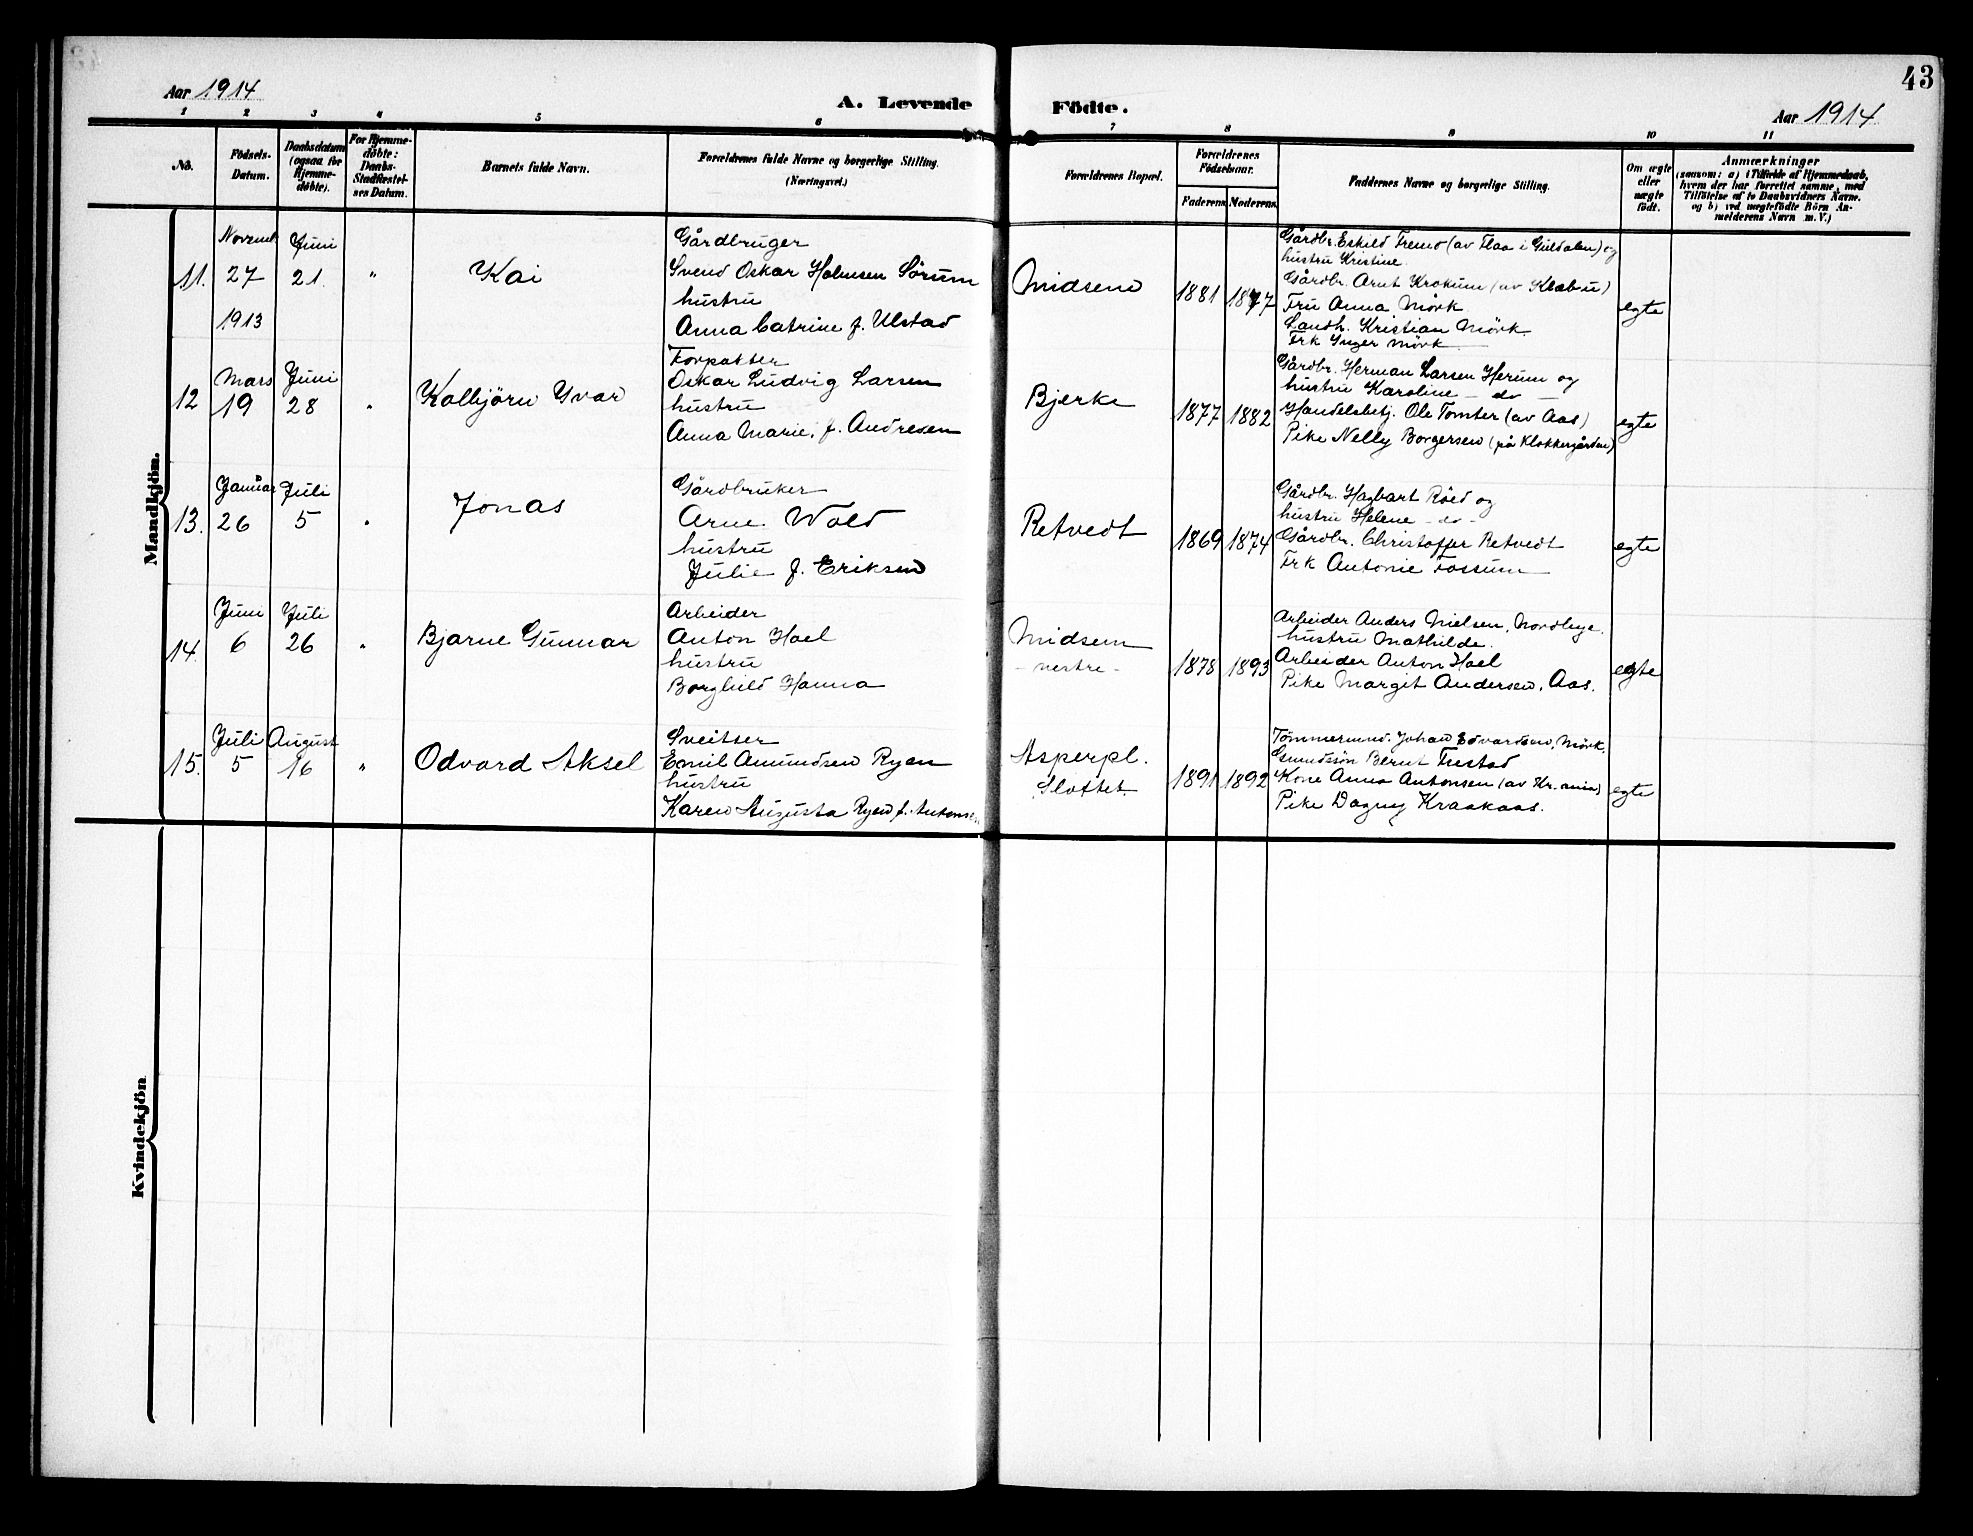 43
Aar 1914
A. Levende Födte.
Aar 1914
1 2 3 4 5 6 7 8 9 10 11
No.
Födsels-
Datum.
Daabsdatum
(ogsaa for
Hjemme-
döbte).
For Hjemme-
döbte:
Daabs-
Stadfæstel-
ses Datum.
Barnets fulde Navn.
Forældrenes fulde Navne og borgerlige Stilling.
(Næringsvei.)
Forældrenes Bopæl.
Forældrenes
Födselsaar.
Faderens. Moderens.
Faddernes Navne og borgerlige Stilling.
Om ægte
eller
uægte
födt.
Anmærkninger
(saasom: a) i Tilfælde af Hjemmedaab,
hvem der har forrettet samme, med
Tilföielse af to Daabsvidners Navne.
og b) ved uægtefödte Börn An-
melderens Navn m. V.)
Mandkjön.
11.
Novemb
27
1913
Juni
21.
"
Kai
Gårdbruger
Svend Oskar Holmsen Sörum
hustru
Anna Catrine f. Ulstad
Midsem
1881 1877
Gårdbr. Eskild Tremo (av Flaa i Guldalen) og
hustru Kristine.
Gårdbr. Arnt Krokum (av Klæbu)
Fru Anna Mörk
Landh. Kristian Mörk.
Frk Inger Mörk
egte
12
Mars
19
Juni
28
"
Kolbjörn Yvar
Forpakter
Oskar Ludvig Larsen
hustru
Anna Marie, f. Andresen
Bjerke
1877 1882
Gårdbr. Herman Larsen Herum og
hustru Karoline - do -
Handelsbetj. Ole Tomter (av Aas)
Pike Nelly Borgersen (på Klokkergården)
egte
13.
Januar
26
Juli
5
"
Jonas
Gårdbruker
Arne Wold
hustru
Julie f. Eriksen
Retvedt
1869 1874
Gårdbr. Hagbart Röed og
hustru Helene - do -
Gårdbr. Christoffer Retvedt
Frk Antonie Fossum
egte
14.
Juni
6
Juli
26
"
Bjarne Gunnar
Arbeider
Anton Hoel
hustru
Borghild Hanna
Midsem
- vestre -
1878 1893
Arbeider Anders Nielsen, Nordbye.
hustru Mathilde.
Arbeider Anton Hoel
Pike Margit Andersen, Aas.
egte
15.
Juli
5
August
16
"
Odvard Aksel
Sveitser
Emil Amundsen Ryen
hustru
Karen Augusta Ryen f. Antonsen
Asperpl.
Slottet.
1891 1892
Tömmermand. Johan Edvardsen, Mörk.
Bernt Tustad
Kone Anna Antonsen (av Kr.ania)
Pike Dagny Kraakaas.
egte
Kvindekjön